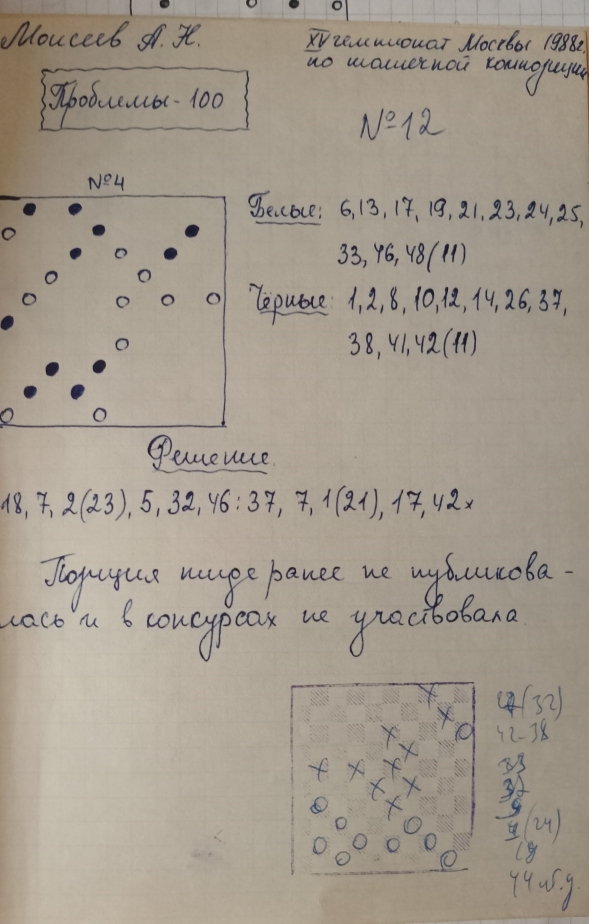 Моисеев А. Н.
XV чемпионат Москвы 1988г.
по шашечной композиции
Проблемы - 100
№12
№4
Белые: 6,13, 17, 19, 21, 23, 24, 25,
33, 46, 48(11)
Чёрные: 1, 2, 8, 10, 12, 14, 26, 37,
38, 41, 42(11)
Решение
18, 7, 2(23), 5, 32, 46:37, 7, 1(21), 17, 42x
Позиция нигде ранее не публикова-
лась и в конкурсах не участвовала
(32)
42-38
33
(24)
19
44